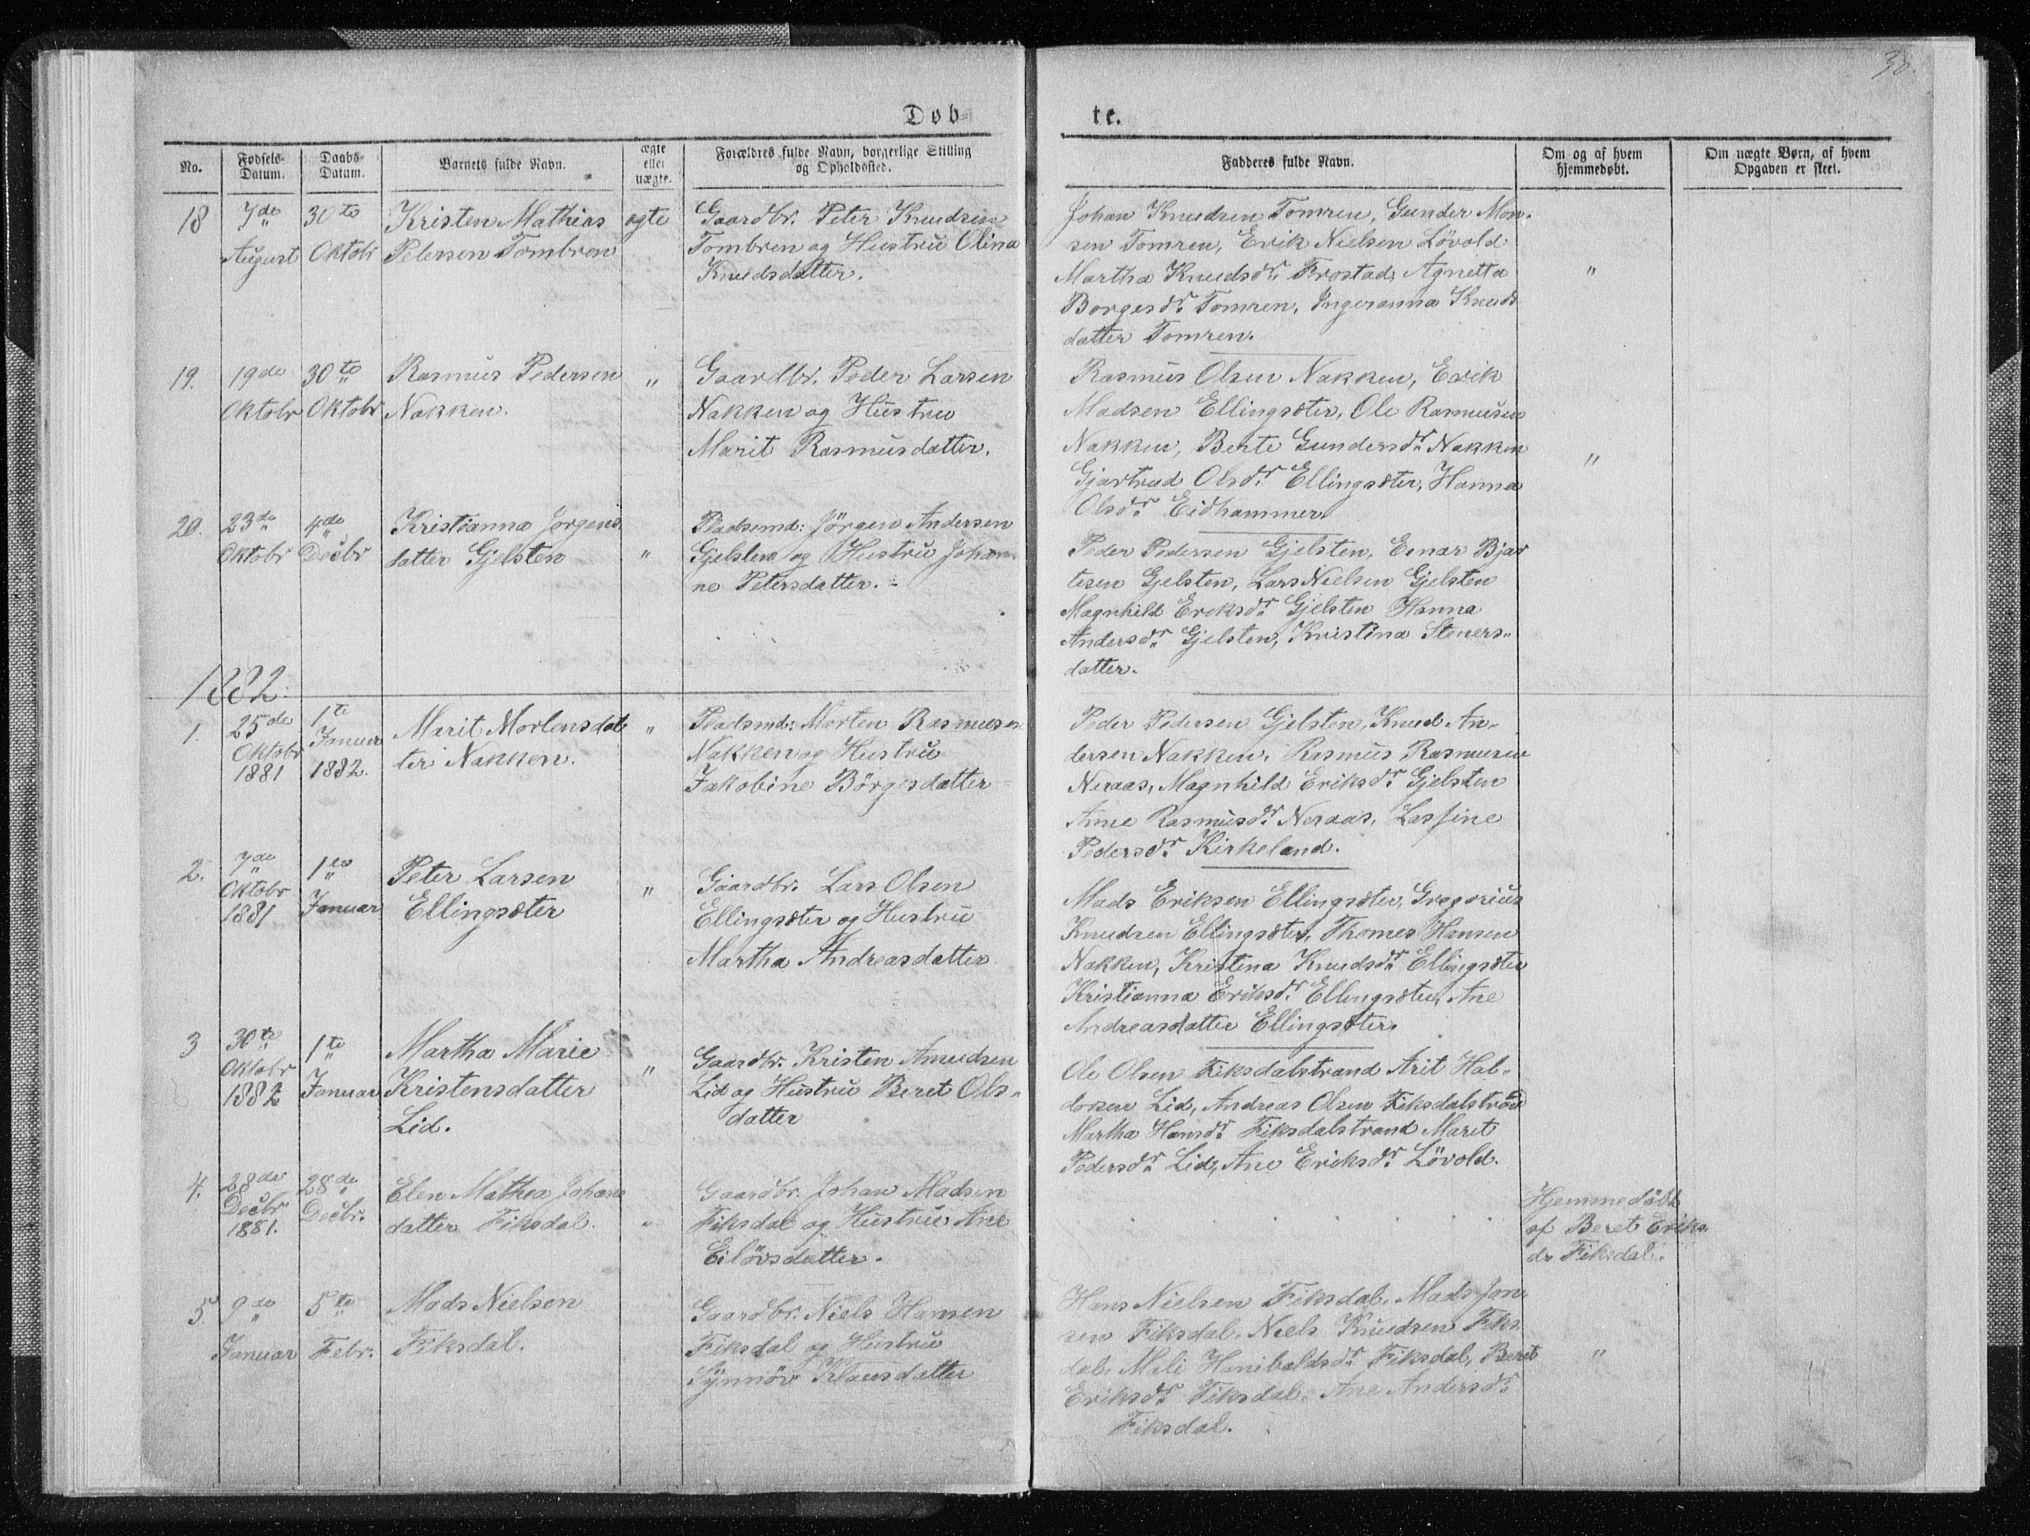 30.
Døb-
te.
No.
Fødsels-
Datum.
Daabs-
Datum.
Barnets fulde Navn.
ægte
eller
uægte.
Forældres fulde Navn, borgerlige Stilling
og Opholdssted.
Fadderes fulde Navn.
Om og af hvem
hjemmedøbt.
Om uægte Børn, af hvem
Opgaven er skeet.
18
7de
August
30te
Oktob
Kristen Mathias
Petersen Tombren
ægte
Gaardbr. Peter Knudsen
Tombren og Hustru Olina
Knudsdatter.
Johan Knudsen Tomren, Gunder Mon-
sen Tomren, Erik Nielsen Lövold
Martha Knudsdr. Frostad, Agnetta
Borgesdr. Tomren, Ingeranna Knuds
datter Tomren.
"
19.
19de
Oktobr
30te
Oktobr
Rasmus Pedersen
Nakken.
"
Gaardbr. Peder Larsen
Nakken og Hustru
Marit Rasmusdatter.
Rasmus Olsen Nakken, Erik
Madsen Ellingsæter, Ole Rasmusen
Nakken, Berte Gundersdr. Nakken
Gjertrud Olsdr. Ellingsæter, Hanna
Olsdr. Eidhammer.
"
20.
23de
Oktobr
4de
Decbr
Kristianna Jorgens
datter Gjelsten
"
Pladsmd: Jörgen Andersen
Gjelsten og Hustru Johan
ne Petersdatter.
Peder Pedersen Gjelsten, Einar Bjar
tesen Gjelsten, Lars Nielsen Gjelsten
Magnhild Eriksdr. Gjelsten Hanna
Andersdr. Gjelsten, Kristina Steners-
datter.
1882.
1.
25de
Oktobr
1881
1te
Januar
1882.
Marit Mortensdat
ter Nakken.
"
Pladsmd: Morten Rasmusen
Nakken og Hustru
Jakobine Börgesdatter
Peder Pedersen Gjelsten, Knud An-
dersen Nakken, Rasmus Rasmusen
Neraas, Magnhild Eriksdr. Gjelsten
Anne Rasmusdr. Neraas, Lassine
Pedersdr. Kirkeland.
2.
7de
Oktobr
1881
1te
Januar
Peter Larsen
Ellingsæter
"
Gaardbr. Lars Olsen
Ellingsæter og Hustru
Martha Andreasdatter.
Mads Eriksen Ellingsæter, Gregorius
Knudsen Ellingsæter, Thomes Hansen
Nakken, Kristina Knudsdr. Ellingsæter
Kristianna Eriksdr. Ellingsæter, Ane
Andreasdatter Ellingsæter.
3
30te
Oktobr
1882
1te
Januar
Martha Marie
Kristensdatter
Lid.
"
Gaardbr. Kristen Amundsen
Lid og Hustru Beret Ols-
datter
Ole Olsen Fiksdalstrand Arit Hal-
dorsen Lid, Andreas Olsen Fiksdalstrand
Martha Hansdr. Fiksdalstrand Maret
Pedersdr. Lid, Ane Eriksdr. Lövold.
4.
28de
Decbr
1881.
28de
Decbr.
Elen Mathea Johans
datter Fiksdal.
"
Gaardbr. Johan Madsen
Fiksdal og Hustru Ane
Eilövsdatter.
Hjemmedöbt
af Beret Eriks
dr Fiksdal.
5.
9de
Januar
5te
Febr.
Mads Nielsen
Fiksdal.
Gaardbr. Niels Hansen
Fiksdal og Hustru
Synnöv Klausdatter
Hans Nielsen Fiksdal, Mads Jon
sen Fiksdal, Niels Knudsen Fiks
dal, Mali Hanibaldsdr. Fiksdal, Beret
Eriksdr. Fiksdal. Ane Andersdr.
Fiksdal.
"